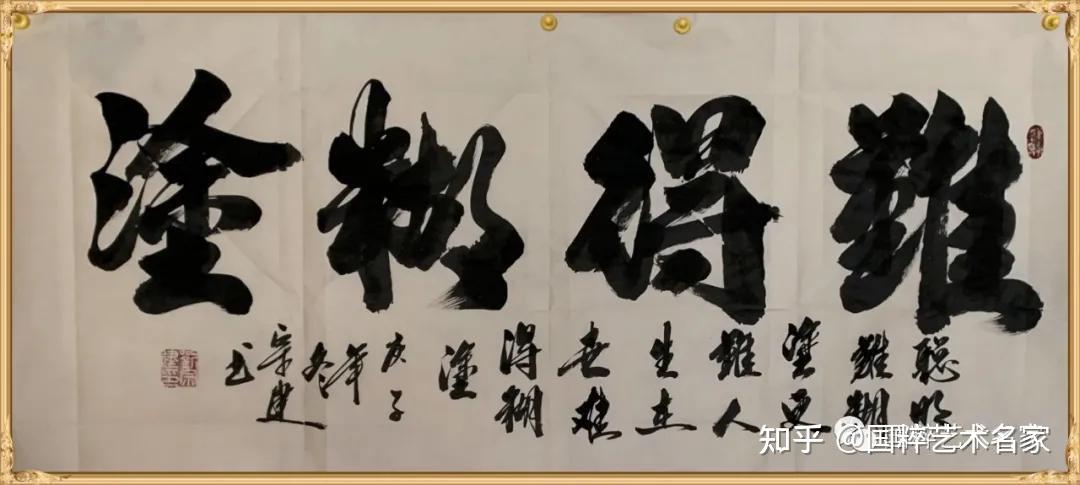 難得糊塗
聪明
難糊
塗更
難人
生在
世难
得糊
塗
庚子
年
冬
宗建
书
知乎 @国粹艺术名家